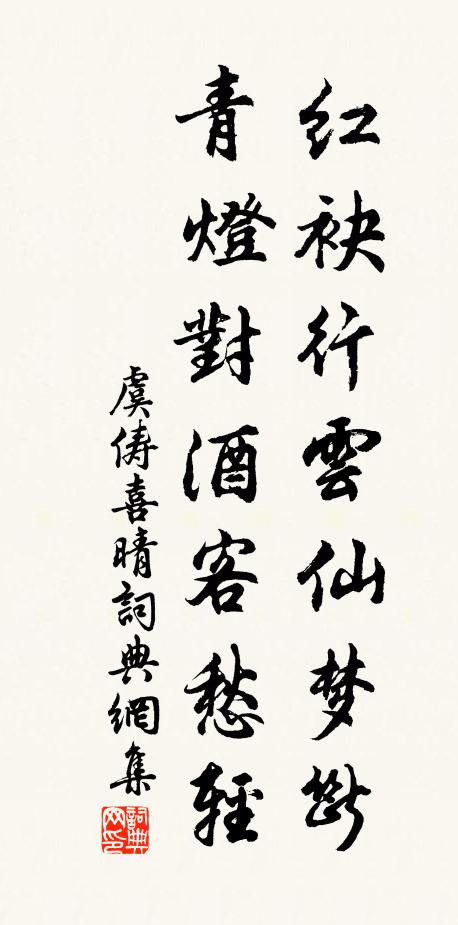 红袂行雲仙梦斷
青燈對酒客愁轻
虞儔喜晴詞典網集
詞典网印